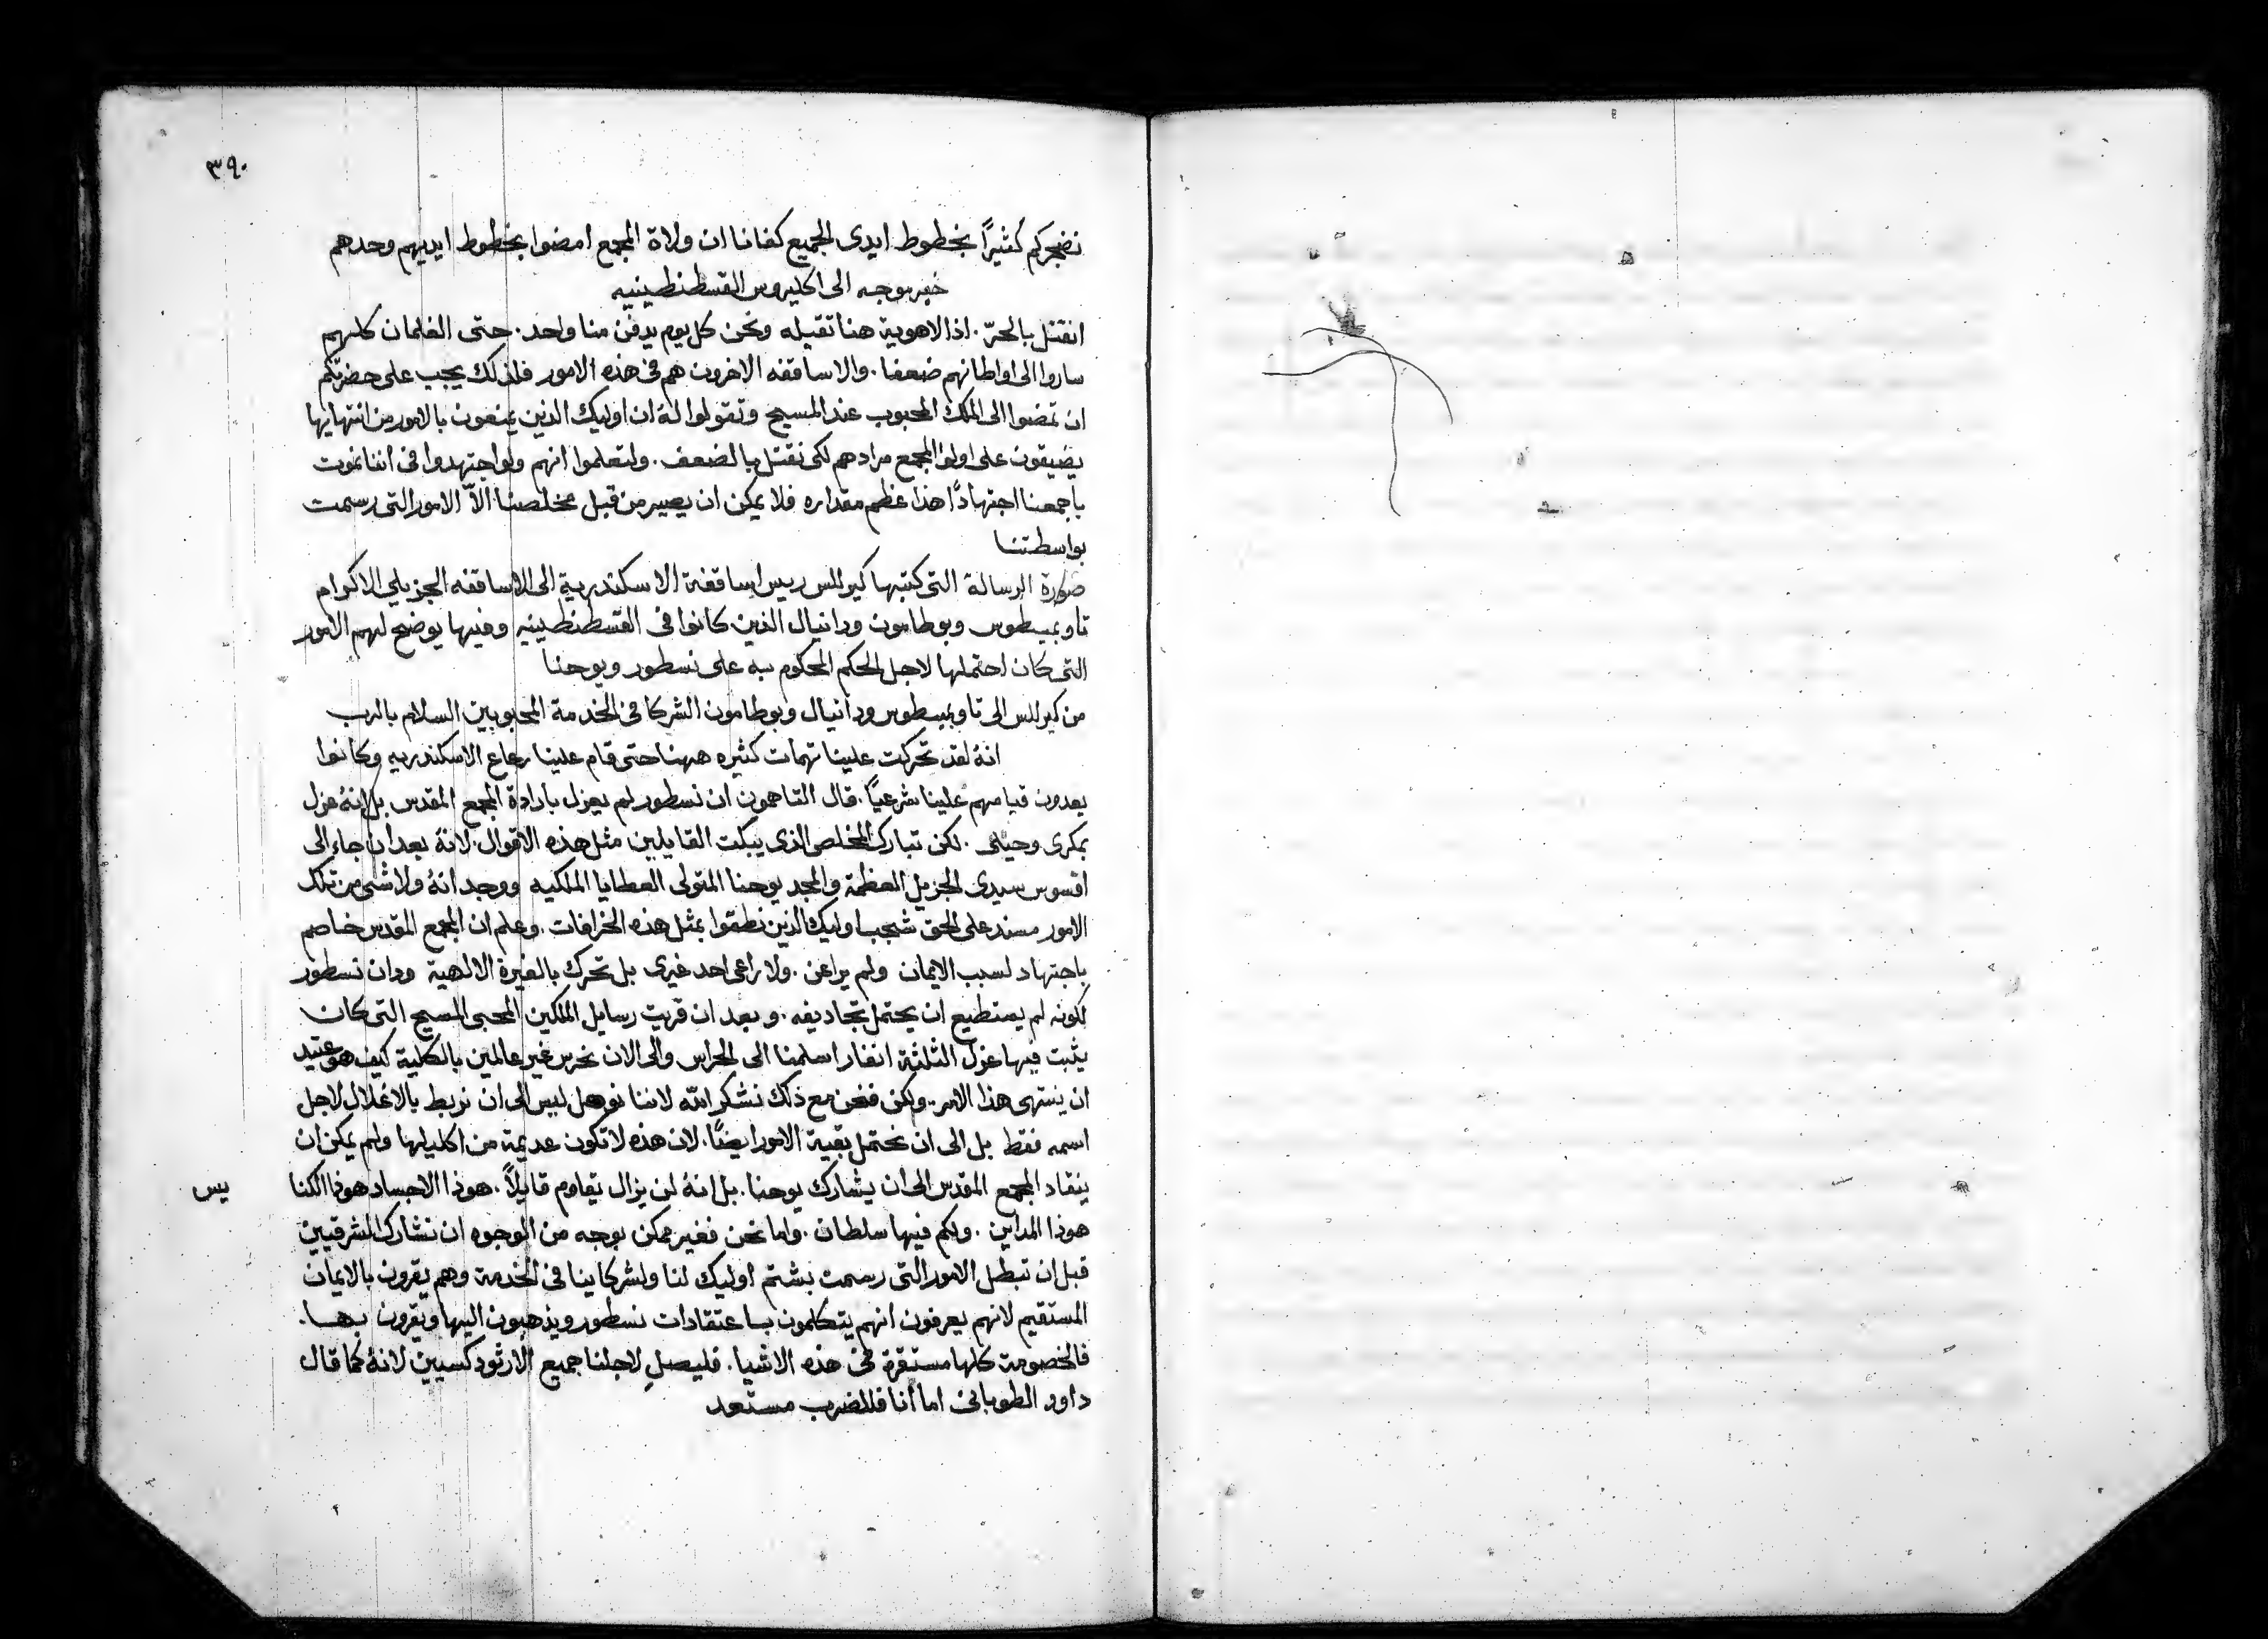 ٣٩٠
نضجركم كثيرًا بخطوط ايدى الجميع كفانا ان ولاة المجمع امضوا بخطوط ايديهم وحدهم
خبر موجه الى اكليروس القسطنطينيه
انقتل بالحرّ . اذ الاهوية هنا ثقيله ونحن كل يوم يدفن منا واحد . حتى الغلمان كلهم
ساروا الى اوطانهم ضعفا . والاساقفه الاخرون هم فى هذه الامور فلذلك يجب على حضرتكم
ان تمضوا الى الملك المحبوب عند المسيح وتقولوا له ان اوليك الذين يمنعون بالامور من انتهايها
يضيقون على اولوا المجمع مرادهم لكى نقتل بالضعف . ولتعلموا انهم ولو اجتهدوا فى اننا نموت
باجمعنا اجتهادًا هذا عظم مقداره فلا يمكن ان يصير من قبل مخلصنا الاّ الامور التى رسمت
بواسطتنا
صورة الرسالة التى كتبها كيرللس رييس اساقفة الاسكندرية الى الاساقفه الجزيلى الاكرام
تاوبمبطوس وبوطامون ودانيال الذين كانوا فى القسطنطينيه وفيها يوضح لهم الامور
التى كان احتملها لاجل الحكم المحكوم به على نسطور ويوحنا
من كيرللس الى تاوبمبطوس ودانيال وبوطامون الشركا فى الخدمة المحبوبين السلام بالرب
انهُ لقد تحركت علينا تهمات كثيره ههنا حتى قام علينا رعاع الاسكندريه وكانوا
يعدون قيامهم علينا شرعيًا . قال التاهمون ان نسطور لم يعزل بارادة المجمع المقدس بل انهُ عزل
بمكرى وحيلى . لكن تبارك المخلص الذى يبكت القايلين مثل هذه الاقوال . لانهُ بعد ان جاء الى
افسوس سيدى الجزيل العظمة والمجد يوحنا المتولى العطايا الملكيه ووجد انهُ ولا شى من تلك
الامور مسند على الحق شجب اوليك الذين نطقوا بمثل هذه الخرافات . وعلم ان المجمع المقدس خاصم
باجتهاد لسبب الايمان ولم يراعن . ولا راعى احد غيرى بل تحرك بالغيرة الالهية ودان نسطور
لكونه لم يستطيع ان يحتمل تجاديفه . وبعد ان قريت رسايل الملكين المحبى المسيح التى كان
يثبت فيها عزل الثلثة انفار اسلمنا الى الحراس والى الان نحرس غير عالمين بالكلية كيف هو عتيد
ان ينتهى هذا الامر . ولكن فنحن مع ذلك نشكر الله لاننا نوهل ليس الى ان نربط بالاغلال لاجل
اسمه فقط بل الى ان نحتمل بقية الامور ايضًا . لان هذه لا تكون عديمة من اكليلها ولم يمكن ان
ينقاد المجمع المقدس الى ان يشارك يوحنا . بل انهُ لن يزال يقاوم قايلاً . هوذا الاجساد هوذا الكنا
يس
هوذا المداين . ولكم فيها سلطان . واما نحن فغير ممكن بوجه من الوجوه ان نشارك الشرقيين
قبل ان تبطل الامور التى رسمت بشتم اوليك لنا ولشركاينا فى الخدمة وهم يقرون بالايمان
المستقيم لانهم يعرفون انهم يتكلمون باعتقادات نسطور ويذهبون اليها ويقرون بها .
فالخصومة كلها مستقرة فى هذه الاشيا . فليصلِ لاجلنا جميع الارثودكسيين لانهُ كما قال
داود الطوبانى اما أنا فللضرب مستعد